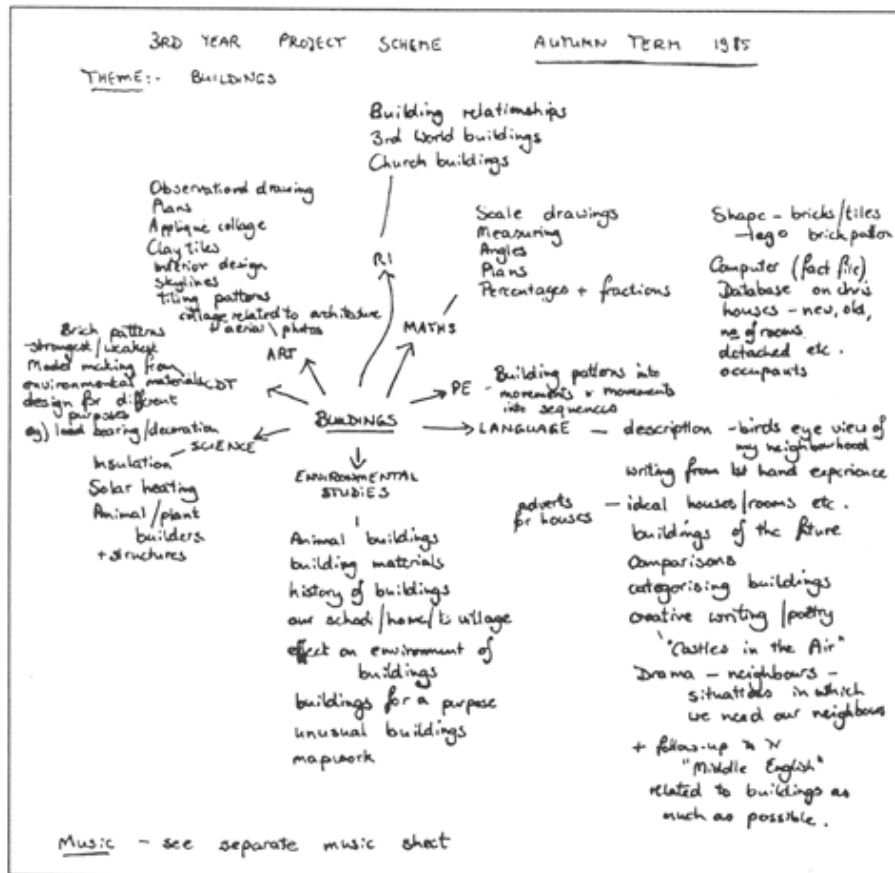 3RD YEAR PROJECT SCHEME AUTUMN TERM 1985
THEME:- BUILDINGS
Building relationships
3rd World buildings
Church buildings
RI
Observational drawing
Plans
Appliqué collage
Clay tiles
interior design
skylines
tiling patterns
collage related to architecture
+ aerial photos
ART
Scale drawings
Measuring
Angles
Plans
Percentages + fractions
MATHS
Shape - bricks/tiles
- lego brick pattern
Computer (fact file)
Database on chris
houses - new, old,
no of rooms
detached etc.
occupants
Brick patterns
strongest/weakest
Model making from
environmental materials CDT
design for different
purposes
eg) load bearing/decoration
BUILDINGS
PE - Building patterns into
movements & movements
into sequences
LANGUAGE - description - birds eye view of
my neighbourhood
writing from 1st hand experience
adverts
for houses
- ideal houses/rooms etc.
buildings of the future
Comparisons
categorising buildings
creative writing/poetry
"Castles in the Air"
Drama - neighbours -
situations in which
we need our neighbours
+ follow-up
"Middle English"
related to buildings as
much as possible.
SCIENCE
Insulation
Solar heating
Animal/plant
builders
+ structures
ENVIRONMENTAL
STUDIES
Animal buildings
building materials
history of buildings
our school/home/ village
effect on environment of
buildings
buildings for a purpose
unusual buildings
mapwork
Music - see separate music sheet